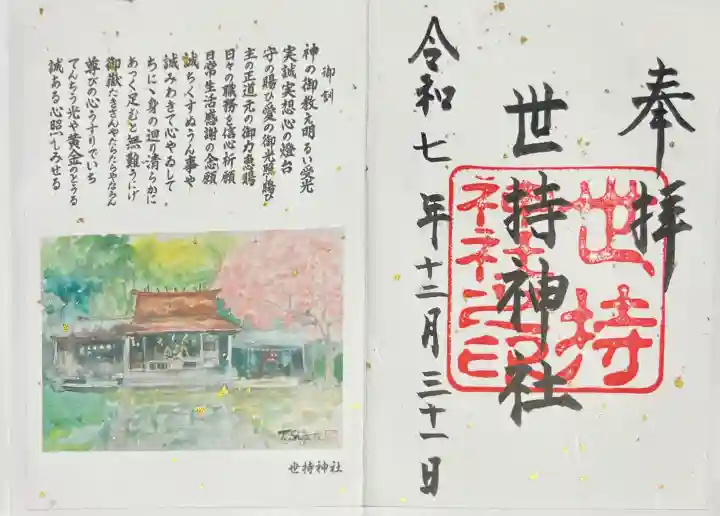 奉拝
世持神社
世持
神社之印
令和七年十二月三十一日
御訓
神の御教え明るい愛光
実誠実想心の燈台
守の賜ひ愛の御光照し賜ひ
主の正道元の御力恵賜
日々の職務を信心祈願
日常生活感謝の念願
誠ちくすぬうん事や
誠みわきて心やゐして
ちにヽ身の迴り清らかに
あつく足むと無難うにげ
御嶽たきさんやたらたらやならん
尊びの心うすりでいち
てんちう光や黄金のとうる
誠ある心照しみせる
世持神社